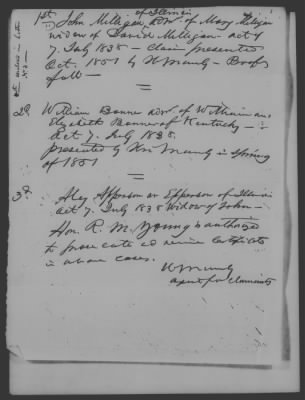 of Illinois
1st John Milligan Adr. of Mary Miligan
widow of David Milligan - act of
7. July 1838 - claim presented
Oct. 1851 by W Maury - Proofs
full -
2d. William Bonner adr. of William an
Elizabeth Bonner of Kentucky -
Act 7. July 1838.
presented by Wm Maury in Spring
of 1851
3d. Apperson or Epperson of Illinois
act 7. July 1838 Widow of John -
Hon. R. M. Young is authorized
to prosecute and receive Certificates
in above cases.
W Maury
agent for claimants